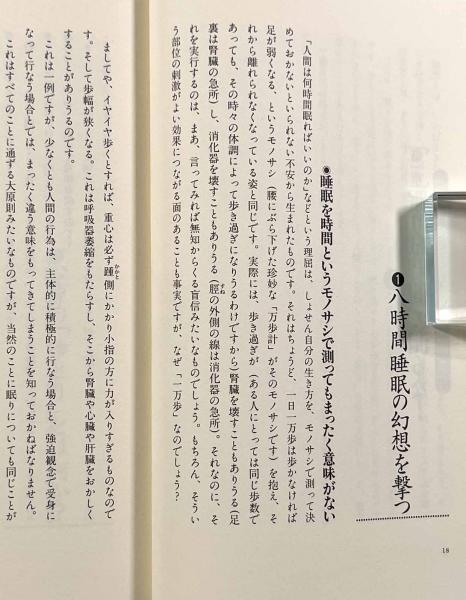 ❶八時間睡眠の幻想を撃つ
◉睡眠を時間というモノサシで測ってもまったく意味がない
「人間は何時間眠ればいいのか」などという理屈は、しょせん自分の生き方を、モノサシで測って決
めておかないといられない不安から生まれたものです。それはちょうど、一日一万歩は歩かなければ
足が弱くなる、というモノサシ（腰にぶら下げた珍妙な「万歩計」がそのモノサシです）を抱え、そ
れから離れられなくなっている姿と同じです。実際には、歩き過ぎが（ある人にとっては同じ歩数で
あっても、その時々の体調によって歩き過ぎになりうるわけですから）腎臓を壊すこともありうる（足
裏は腎臓の急所）し、消化器を壊すこともありうる（脛の外側の線は消化器の急所）。それなのに、そ
れを実行するのは、まあ、言ってみれば無知からくる盲信みたいなものでしょう。もちろん、そうい
う部位の刺激がよい効果につながる面のあることも事実ですが、なぜ「一万歩」なのでしょう？
ましてや、イヤイヤ歩くとすれば、重心は必ず踵側にかかり小指の方に力が入りすぎるものなので
す。そして歩幅が狭くなる。これは呼吸器萎縮をもたらすし、そこから腎臓や心臓や肝臓をおかしく
することがありうるのです。
これは一例ですが、少なくとも人間の行為は、主体的に積極的に行なう場合と、強迫観念で受身に
なって行なう場合とでは、まったく違う意味をもってきてしまうことを知っておかねばなりません。
これはすべてのことに通ずる大原則みたいなものですが、当然のことに眠りについても同じことが
18